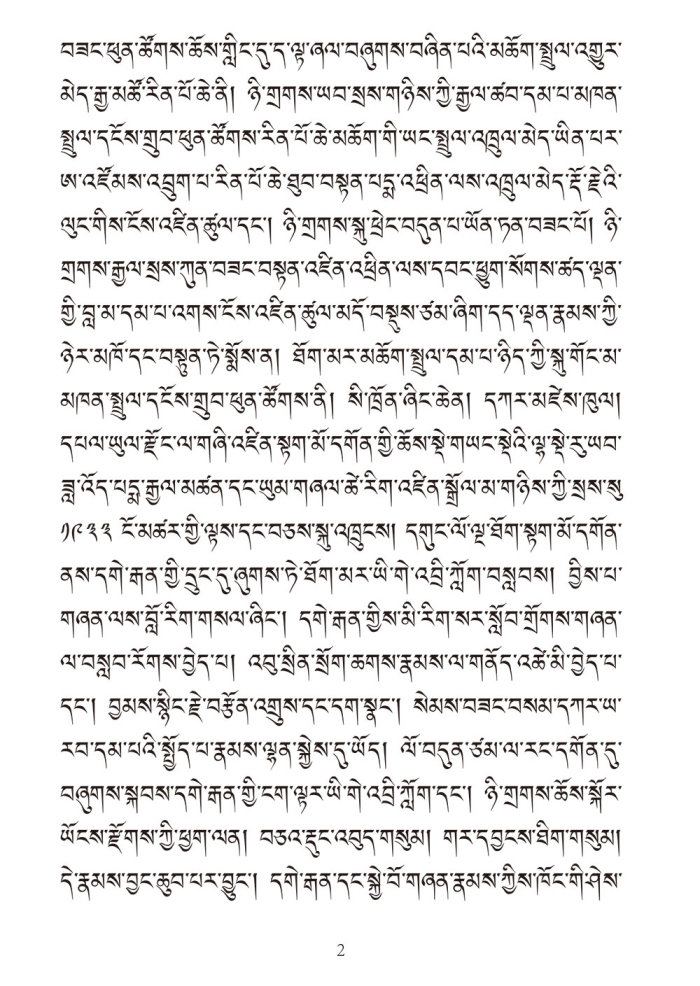 བཟང་ཕུན་ཚོགས་ཆོས་གླིང་དུ་ད་ལྟ་ཞལ་བཞུགས་བཞིན་པའི་མཆོག་སྤྲུལ་འགྱུར་
མེད་རྒྱ་མཚོ་རིན་པོ་ཆེ་ནི། ཉི་གྲགས་ཡབ་སྲས་གཉིས་ཀྱི་རྒྱལ་ཚབ་དམ་པ་མཁན་
སྤྲུལ་དངོས་གྲུབ་ཕུན་ཚོགས་རིན་པོ་ཆེ་མཆོག་གི་ཡང་སྤྲུལ་འཁྲུལ་མེད་ཡིན་པར་
ཨ་འཛོམས་འབྲུག་པ་རིན་པོ་ཆེ་ཐུབ་བསྟན་པདྨ་འཕྲིན་ལས་འཁྲུལ་མེད་རྡོ་རྗེའི་
ལུང་གིས་ངོས་འཛིན་ཚུལ་དང་། ཉི་གྲགས་སྐུ་ཕྲེང་བདུན་པ་ཡོན་ཏན་བཟང་པོ། ཉི་
གྲགས་རྒྱལ་སྲས་ཀུན་བཟང་བསྟན་འཛིན་འཕྲིན་ལས་དབང་ཕྱུག་སོགས་ཚད་ལྡན་
གྱི་བླ་མ་དམ་པ་འགས་ངོས་འཛིན་ཚུལ་མདོ་བསྡུས་ཙམ་ཞིག་དད་ལྡན་རྣམས་ཀྱི་
ཉེར་མཁོ་དང་བསྟུན་ཏེ་སྨོས་ན། ཐོག་མར་མཆོག་སྤྲུལ་དམ་པ་ཉིད་ཀྱི་སྐུ་གོང་མ་
མཁན་སྤྲུལ་དངོས་གྲུབ་ཕུན་ཚོགས་ནི། སི་ཁྲོན་ཞིང་ཆེན། དཀར་མཛེས་ཁུལ།
དཔལ་ཡུལ་རྫོང་ལ་གཞི་འཛིན་སྟག་མོ་དགོན་གྱི་ཆོས་སྡེ་གཡང་སྡེའི་ལྷ་སྡེ་རུ་ཡབ་
ཟླ་འོད་པདྨ་རྒྱལ་མཚན་དང་ཡུམ་གཞལ་ཚེ་རིག་འཛིན་སྒྲོལ་མ་གཉིས་ཀྱི་སྲས་སུ
༡༩༣༣ ངོ་མཚར་གྱི་ལྟས་དང་བཅས་སྐུ་འཁྲུངས། དགུང་ལོ་ལྔ་ཐོག་སྟག་མོ་དགོན་
ནས་དགེ་རྒན་གྱི་དྲུང་དུ་ཞུགས་ཏེ་ཐོག་མར་ཡི་གེ་འབྲི་ཀློག་བསླབས། བྱིས་པ་
གཞན་ལས་བློ་རིག་གསལ་ཞིང་། དགེ་རྒན་གྱིས་མི་རིག་སར་སློབ་གྲོགས་གཞན་
ལ་བསླབ་རོགས་བྱེད་པ། འབུ་སྲིན་སྲོག་ཆགས་རྣམས་ལ་གནོད་འཚེ་མི་བྱེད་པ་
དང་། བྱམས་སྙིང་རྗེ་བརྩོན་འགྲུས་དང་དག་སྣང་། སེམས་བཟང་བསམ་དཀར་ཡ་
རབ་དམ་པའི་སྤྱོད་པ་རྣམས་ལྷན་སྐྱེས་དུ་ཡོད། ལོ་བདུན་ཙམ་ལ་རང་དགོན་དུ་
བཞུགས་སྐབས་དགེ་རྒན་གྱི་ངག་ལྟར་ཡི་གེ་འབྲི་ཀློག་དང་། ཉི་གྲགས་ཆོས་སྐོར་
ཡོངས་རྫོགས་ཀྱི་ཕྱག་ལན། བཅའ་རྡུང་འབུད་གསུམ། གར་དབྱངས་ཐིག་གསུམ།
དེ་རྣམས་བྱང་ཆུབ་པར་བྱུང་། དགེ་རྒན་དང་སྐྱེ་བོ་གཞན་རྣམས་ཀྱིས་ཁོང་གི་ཤེས་
2